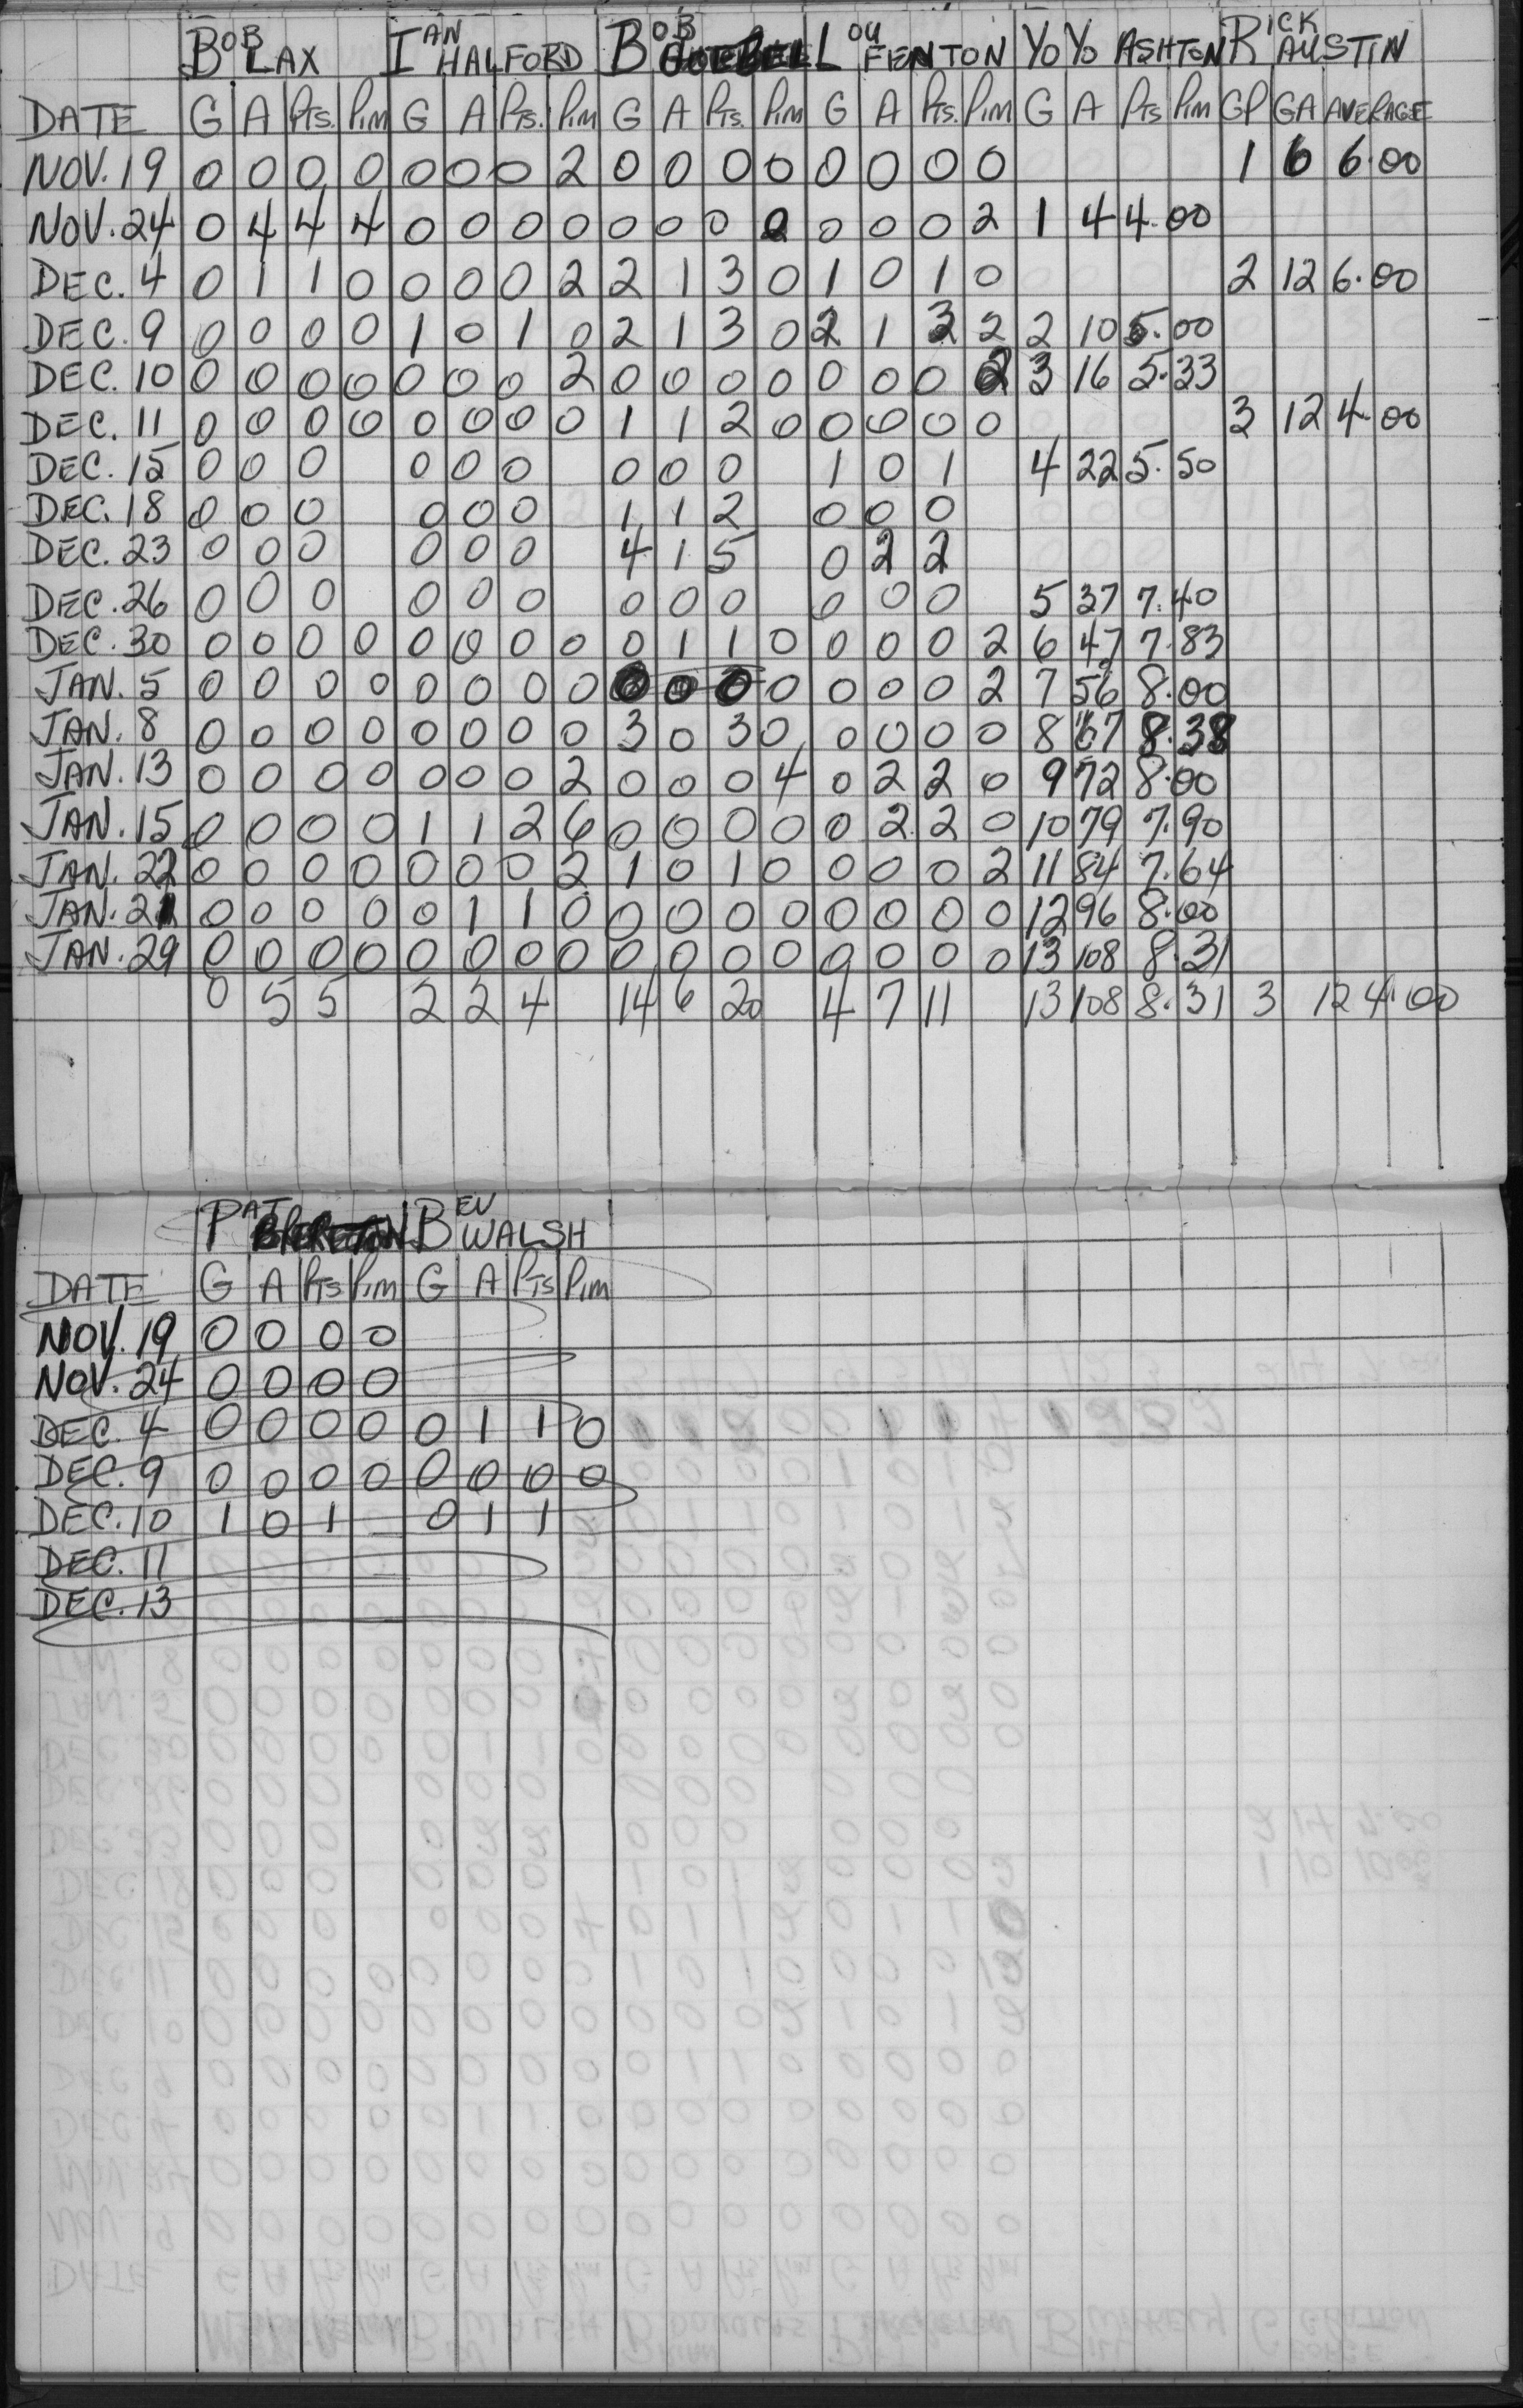 BOB LAX IAN HALFORD BOB LOU FENTON YOYO ASHTON RICK AUSTIN
DATE G A Pts. Pim G A Pts. Pim G A Pts. Pim G A Pts. Pim G A Pts Pim GP GA AVERAGE
NOV. 19 0 0 0 0 0 0 0 2 0 0 0 0 0 0 0 0 1 6 6.00
NOV. 24 0 4 4 4 0 0 0 0 0 0 0 2 0 0 0 2 1 4 4.00
DEC. 4 0 1 1 0 0 0 0 2 2 1 3 0 1 0 1 0 2 12 6.00
DEC. 9 0 0 0 0 1 0 1 0 2 1 3 0 2 1 3 2 2 10 5.00
DEC. 10 0 0 0 0 0 0 0 2 0 0 0 0 0 0 0 2 3 16 5.33
DEC. 11 0 0 0 0 0 0 0 0 1 1 2 0 0 0 0 0 3 12 4.00
DEC. 15 0 0 0 0 0 0 0 0 0 1 0 1 4 22 5.50
DEC. 18 0 0 0 0 0 0 1 1 2 0 0 0
DEC. 23 0 0 0 0 0 0 4 1 5 0 2 2
DEC. 26 0 0 0 0 0 0 0 0 0 0 0 0 5 37 7.40
DEC. 30 0 0 0 0 0 0 0 0 0 1 1 0 0 0 0 2 6 47 7.83
JAN. 5 0 0 0 0 0 0 0 0 0 0 0 0 0 0 0 2 7 56 8.00
JAN. 8 0 0 0 0 0 0 0 0 3 0 3 0 0 0 0 0 8 67 8.38
JAN. 13 0 0 0 0 0 0 0 2 0 0 0 4 0 2 2 0 9 72 8.00
JAN. 15 0 0 0 0 1 1 2 6 0 0 0 0 0 2 2 0 10 79 7.90
JAN. 22 0 0 0 0 0 0 0 2 1 0 1 0 0 0 0 2 11 84 7.64
JAN. 21 0 0 0 0 0 1 1 0 0 0 0 0 0 0 0 0 12 96 8.00
JAN. 29 0 0 0 0 0 0 0 0 0 0 0 0 0 0 0 0 13 108 8.31
0 5 5 2 2 4 14 6 20 4 7 11 13 108 8.31 3 12 4.00
PAT BRERETON BEV WALSH
DATE G A Pts Pim G A Pts Pim
NOV. 19 0 0 0 0
NOV. 24 0 0 0 0
DEC. 4 0 0 0 0 0 1 1 0
DEC. 9 0 0 0 0 0 0 0 0
DEC. 10 1 0 1 0 1 1
DEC. 11
DEC. 13